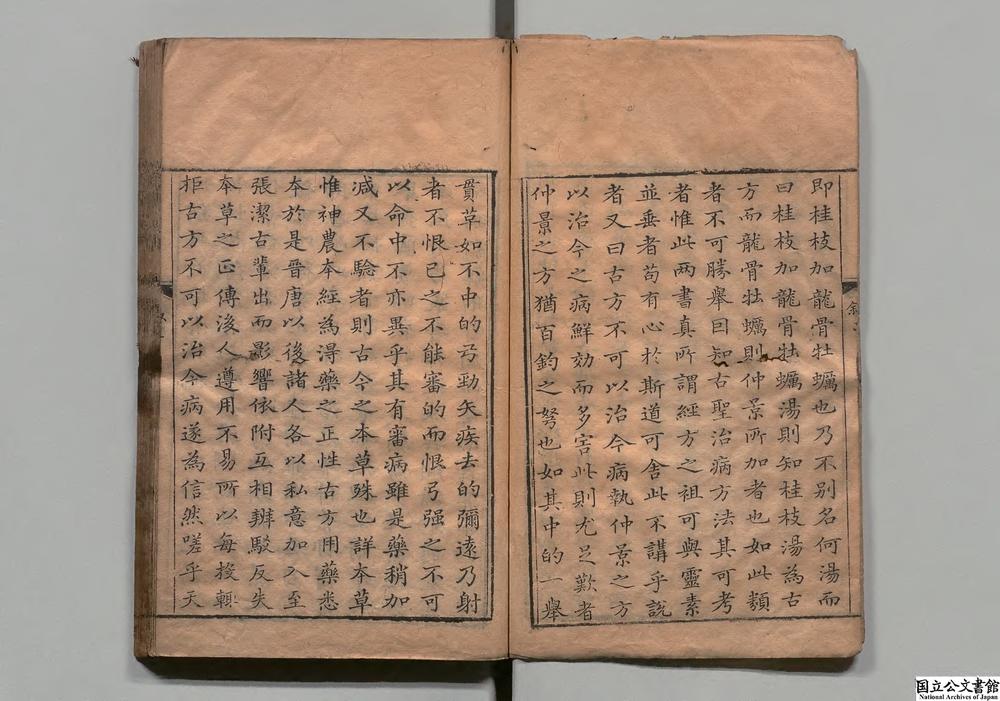 即桂枝加龍骨牡蠣也乃不别名何湯而
曰桂枝加龍骨牡蠣湯則知桂枝湯為古
方而龍骨牡蠣則仲景所加者也如此類
者不可勝舉曰知古聖治病方法其可考
者惟此两書真所謂經方之祖可與靈素
並垂者苟有心於斯道可舍此不講乎説
者又曰古方不可以治今病執仲景之方
以治今之病鮮効而多害此則尤足歎者
仲景之方猶百鈞之弩也如其中的一舉
貫革如不中的弓勁矢疾去的彌遠乃射
者不恨已之不能審的而恨弓强之不可
以命中不亦異乎其有審病雖是藥稍加
减又不驗者則古今之本草殊也詳本草
惟神農本經為得藥之正性古方用藥悉
本於是晉唐以後諸人各以私意加入至
張潔古輩出而影響依附互相辨駁反失
本草之正傳後人遵用不易所以每投輒
拒古方不可以治今病遂為信然嗟乎天
国立公文書館
National Archives of Japan